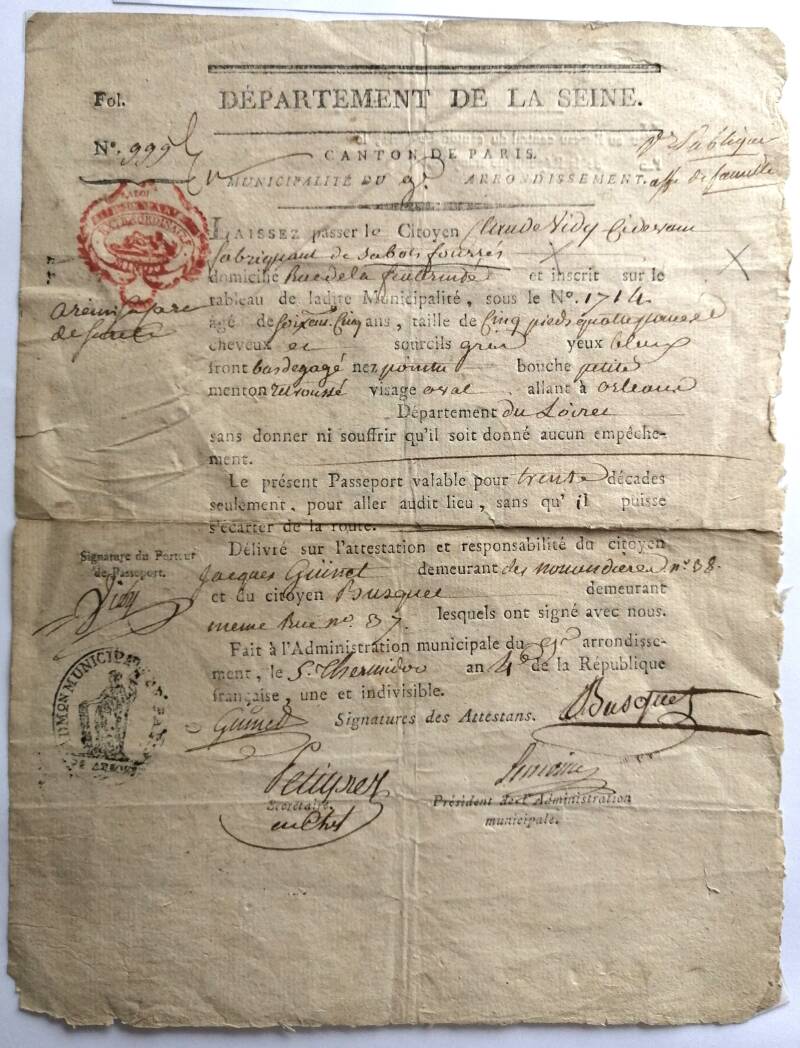 Fol.
DÉPARTEMENT DE LA SEINE.
Nº. 999
CANTON DE PARIS.
MUNICIPALITÉ DU 9e. ARRONDISSEMENT.
affe de famille
EXTRAORDINAIRE
LAISSEZ passer le Citoyen Claude Vidy Cidevant
fabriquant de Sabots fourrés
domicilié Rue de la et inscrit sur le
tableau de ladite Municipalité, sous le Nº. 1714
âgé de Soixante Cinq ans, taille de Cinq pieds quatre pouces
cheveux et sourcils gris yeux bleux
front bas degagé nez pointu bouche petite
menton retroussé visage oval allant à orleans
Département du Loiret
sans donner ni souffrir qu'il soit donné aucun empêche-
ment.
Le présent Passeport valable pour trente décades
seulement, pour aller audit lieu, sans qu'il puisse
s'écarter de la route.
Délivré sur l'attestation et responsabilité du citoyen
Signature du Porteur
de Passeport.
Vidy
Jacques Guinet demeurant des nonandieres nº. 38.
et du citoyen Busquet demeurant
meme Rue nº. 37. lesquels ont signé avec nous.
Fait à l'Administration municipale du 9e arrondisse-
ment, le 5. Thermidor an 4e de la République
française, une et indivisible.
ADM.ON MUNICIPALE
Guinet Signatures des Attestans. Busquet
Secrétaire
en Chef
Président de l'Administration
municipale.